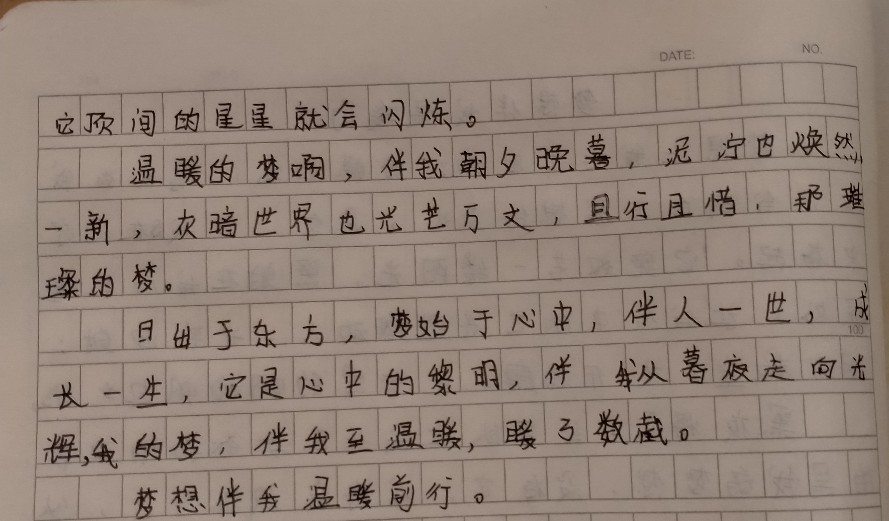 DATE: NO.
它顶间的星星就会闪炼。
温暖的梦啊，伴我朝夕晚暮，泥泞也焕然
一新，灰暗世界也光芒万文，且行且惜，那璀
璨的梦。
日出于东方，梦始于心中，伴人一世，成
100
长一生，它是心中的黎明，伴我从暮夜走向光
辉,我的梦，伴我至温暖，暖了数载。
梦想伴我温暖前行。